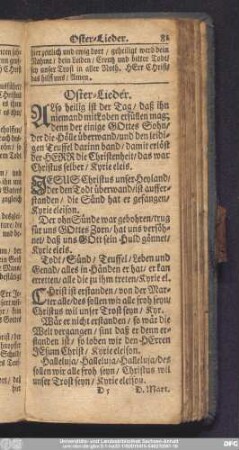 Oster-Lieder. 81
herzentlich und ewig dort / geheiligt werd dein
Nahme / dein Leiden / Creutz und bitter Todt /
sey unser Trost in aller Noth. HErr Christ /
das hilff uns / Amen.
Oster-Lieder.
Also heilig ist der Tag / daß ihn
niemand mit Loben erfüllen mag:
denn der einige GOttes Sohn /
der die Hölle überwand / und den leidi-
gen Teuffel darinn band / damit erlöst
der HERR die Christenheit / das war
Christus selber / Kyrie eleis.
JESUS Christus unser Heyland /
der den Todt überwand / ist aufferr-
standen / die Sünd hat er gefangen /
Kyrie eleison.
Der ohn Sünde war gebohren / trug
für uns GOttes Zorn / hat uns versöh-
net / daß uns GOtt sein Huld gönnet /
Kyrie eleis.
Todt / Sünd / Teuffel / Leben und
Genad / alles in Händen er hat / er kan
erretten / alle die zu ihm treten / Kyrie el.
Christ ist erstanden / von der Mar-
ter alle / des sollen wir alle froh seyn /
Christus wil unser Trost seyn / Kyr.
Wär er nicht erstanden / so wär die
Welt vergangen / sint daß er denn er-
standen ist / so loben wir den HErren
JEsum Christ / Kyrie eleison.
Halleluja / Halleluja / Halleluja / des
sollen wir alle froh seyn / Christus wil
unser Trost seyn / Kyrie eleison.
D 5 D. Mart.